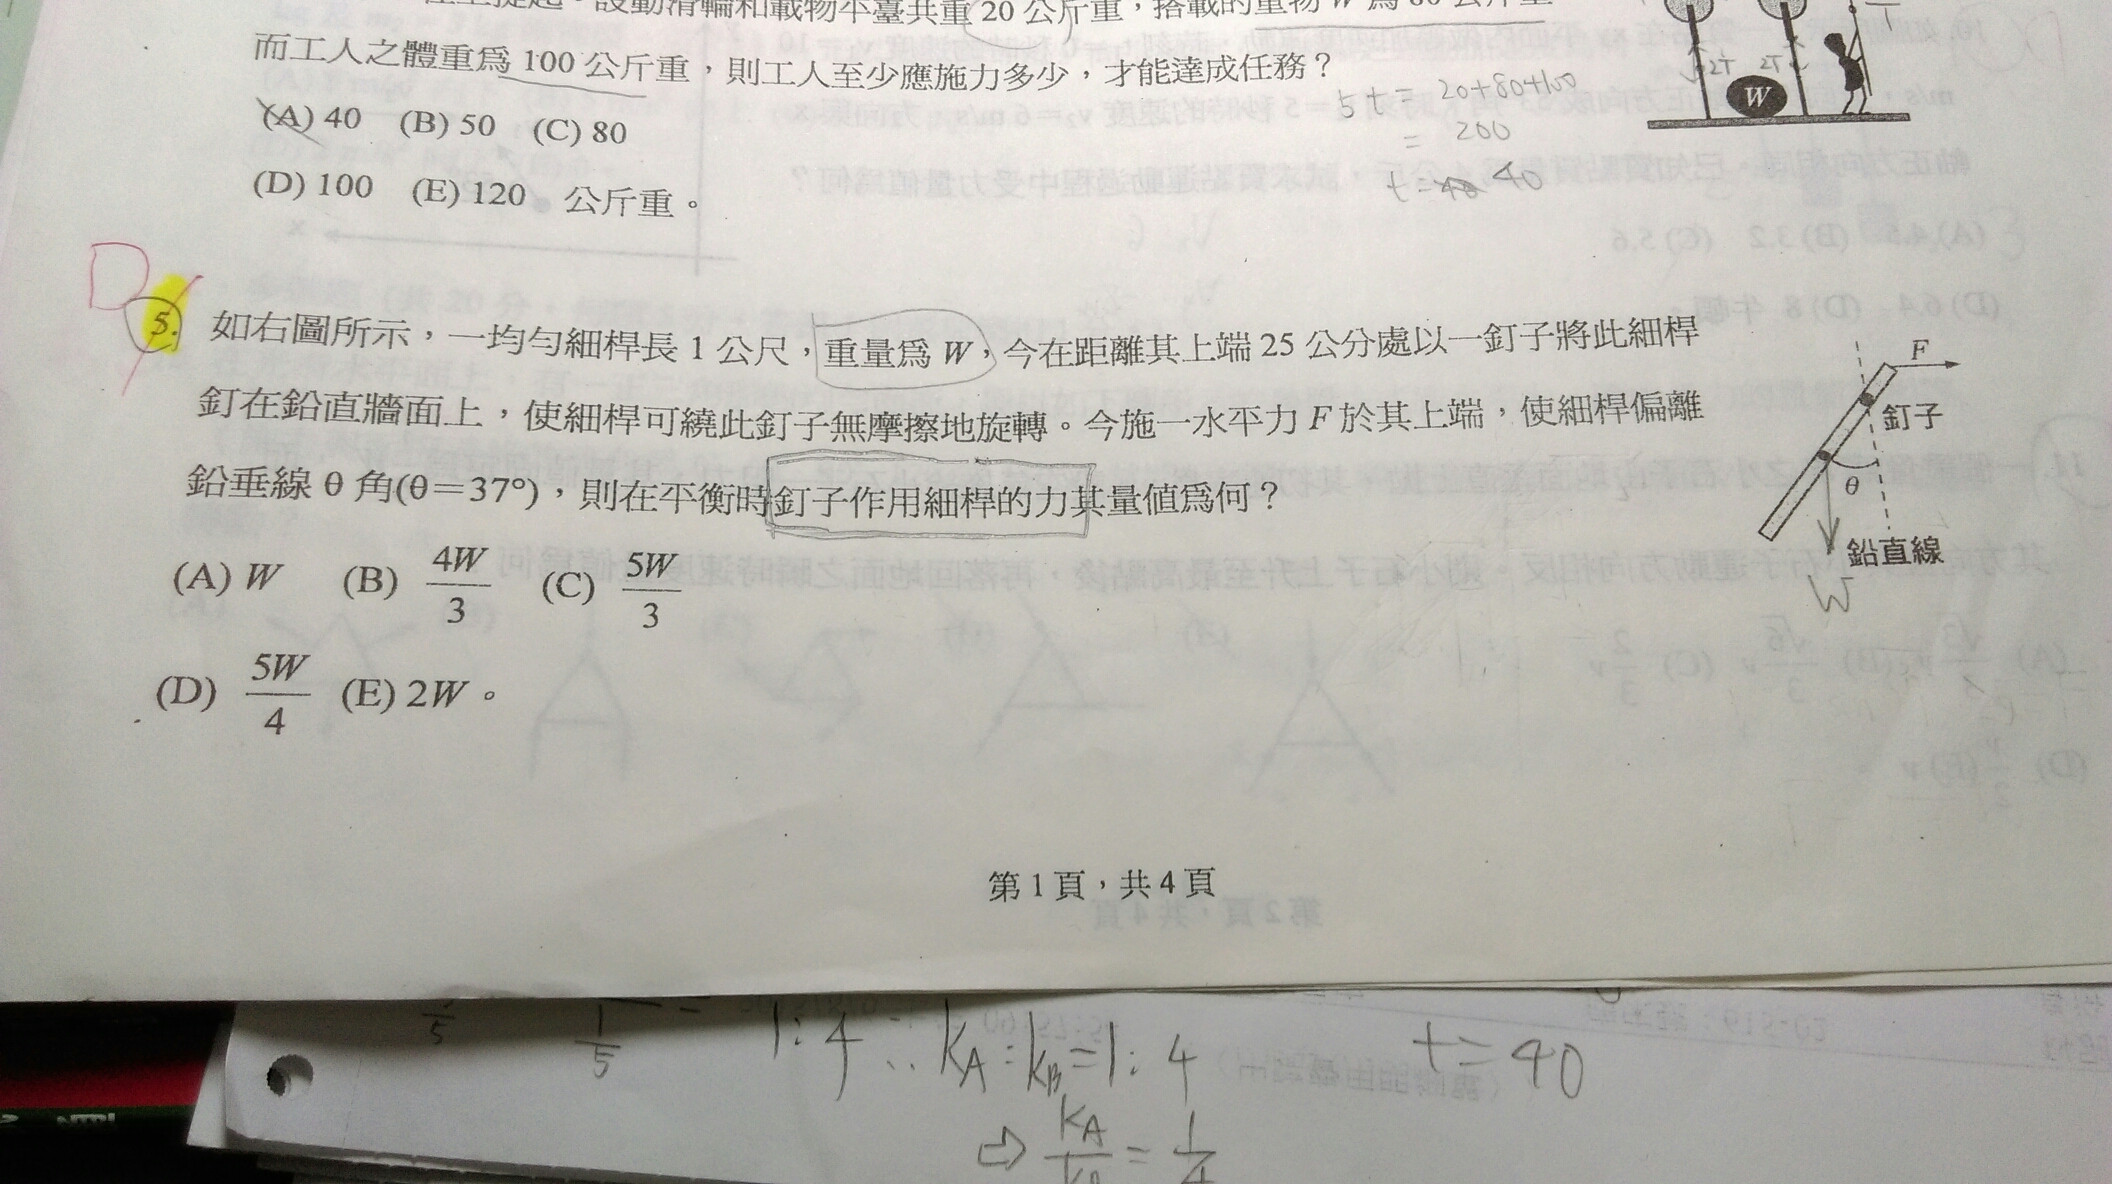 在上提起。設動滑輪和載物平臺共重 20 公斤重，搭載的重物 W 爲 80 公斤重
而工人之體重爲 100 公斤重，則工人至少應施力多少，才能達成任務？
(A) 40 (B) 50 (C) 80
(D) 100 (E) 120 公斤重。
2T 2T
W
5t = 20+80+100
= 200
t = 40
D
5. 如右圖所示，一均勻細桿長 1 公尺，重量爲 W，今在距離其上端 25 公分處以一釘子將此細桿
釘在鉛直牆面上，使細桿可繞此釘子無摩擦地旋轉。今施一水平力 F 於其上端，使細桿偏離
鉛垂線 θ 角(θ＝37°)，則在平衡時釘子作用細桿的力其量值爲何？
(A) W (B) 4W/3 (C) 5W/3
(D) 5W/4 (E) 2W。
F
釘子
θ
鉛直線
W
第 1 頁，共 4 頁
1/5 1:4 ∴ kA:kB=1:4 t=40
⇨ kA/kB = 1/4